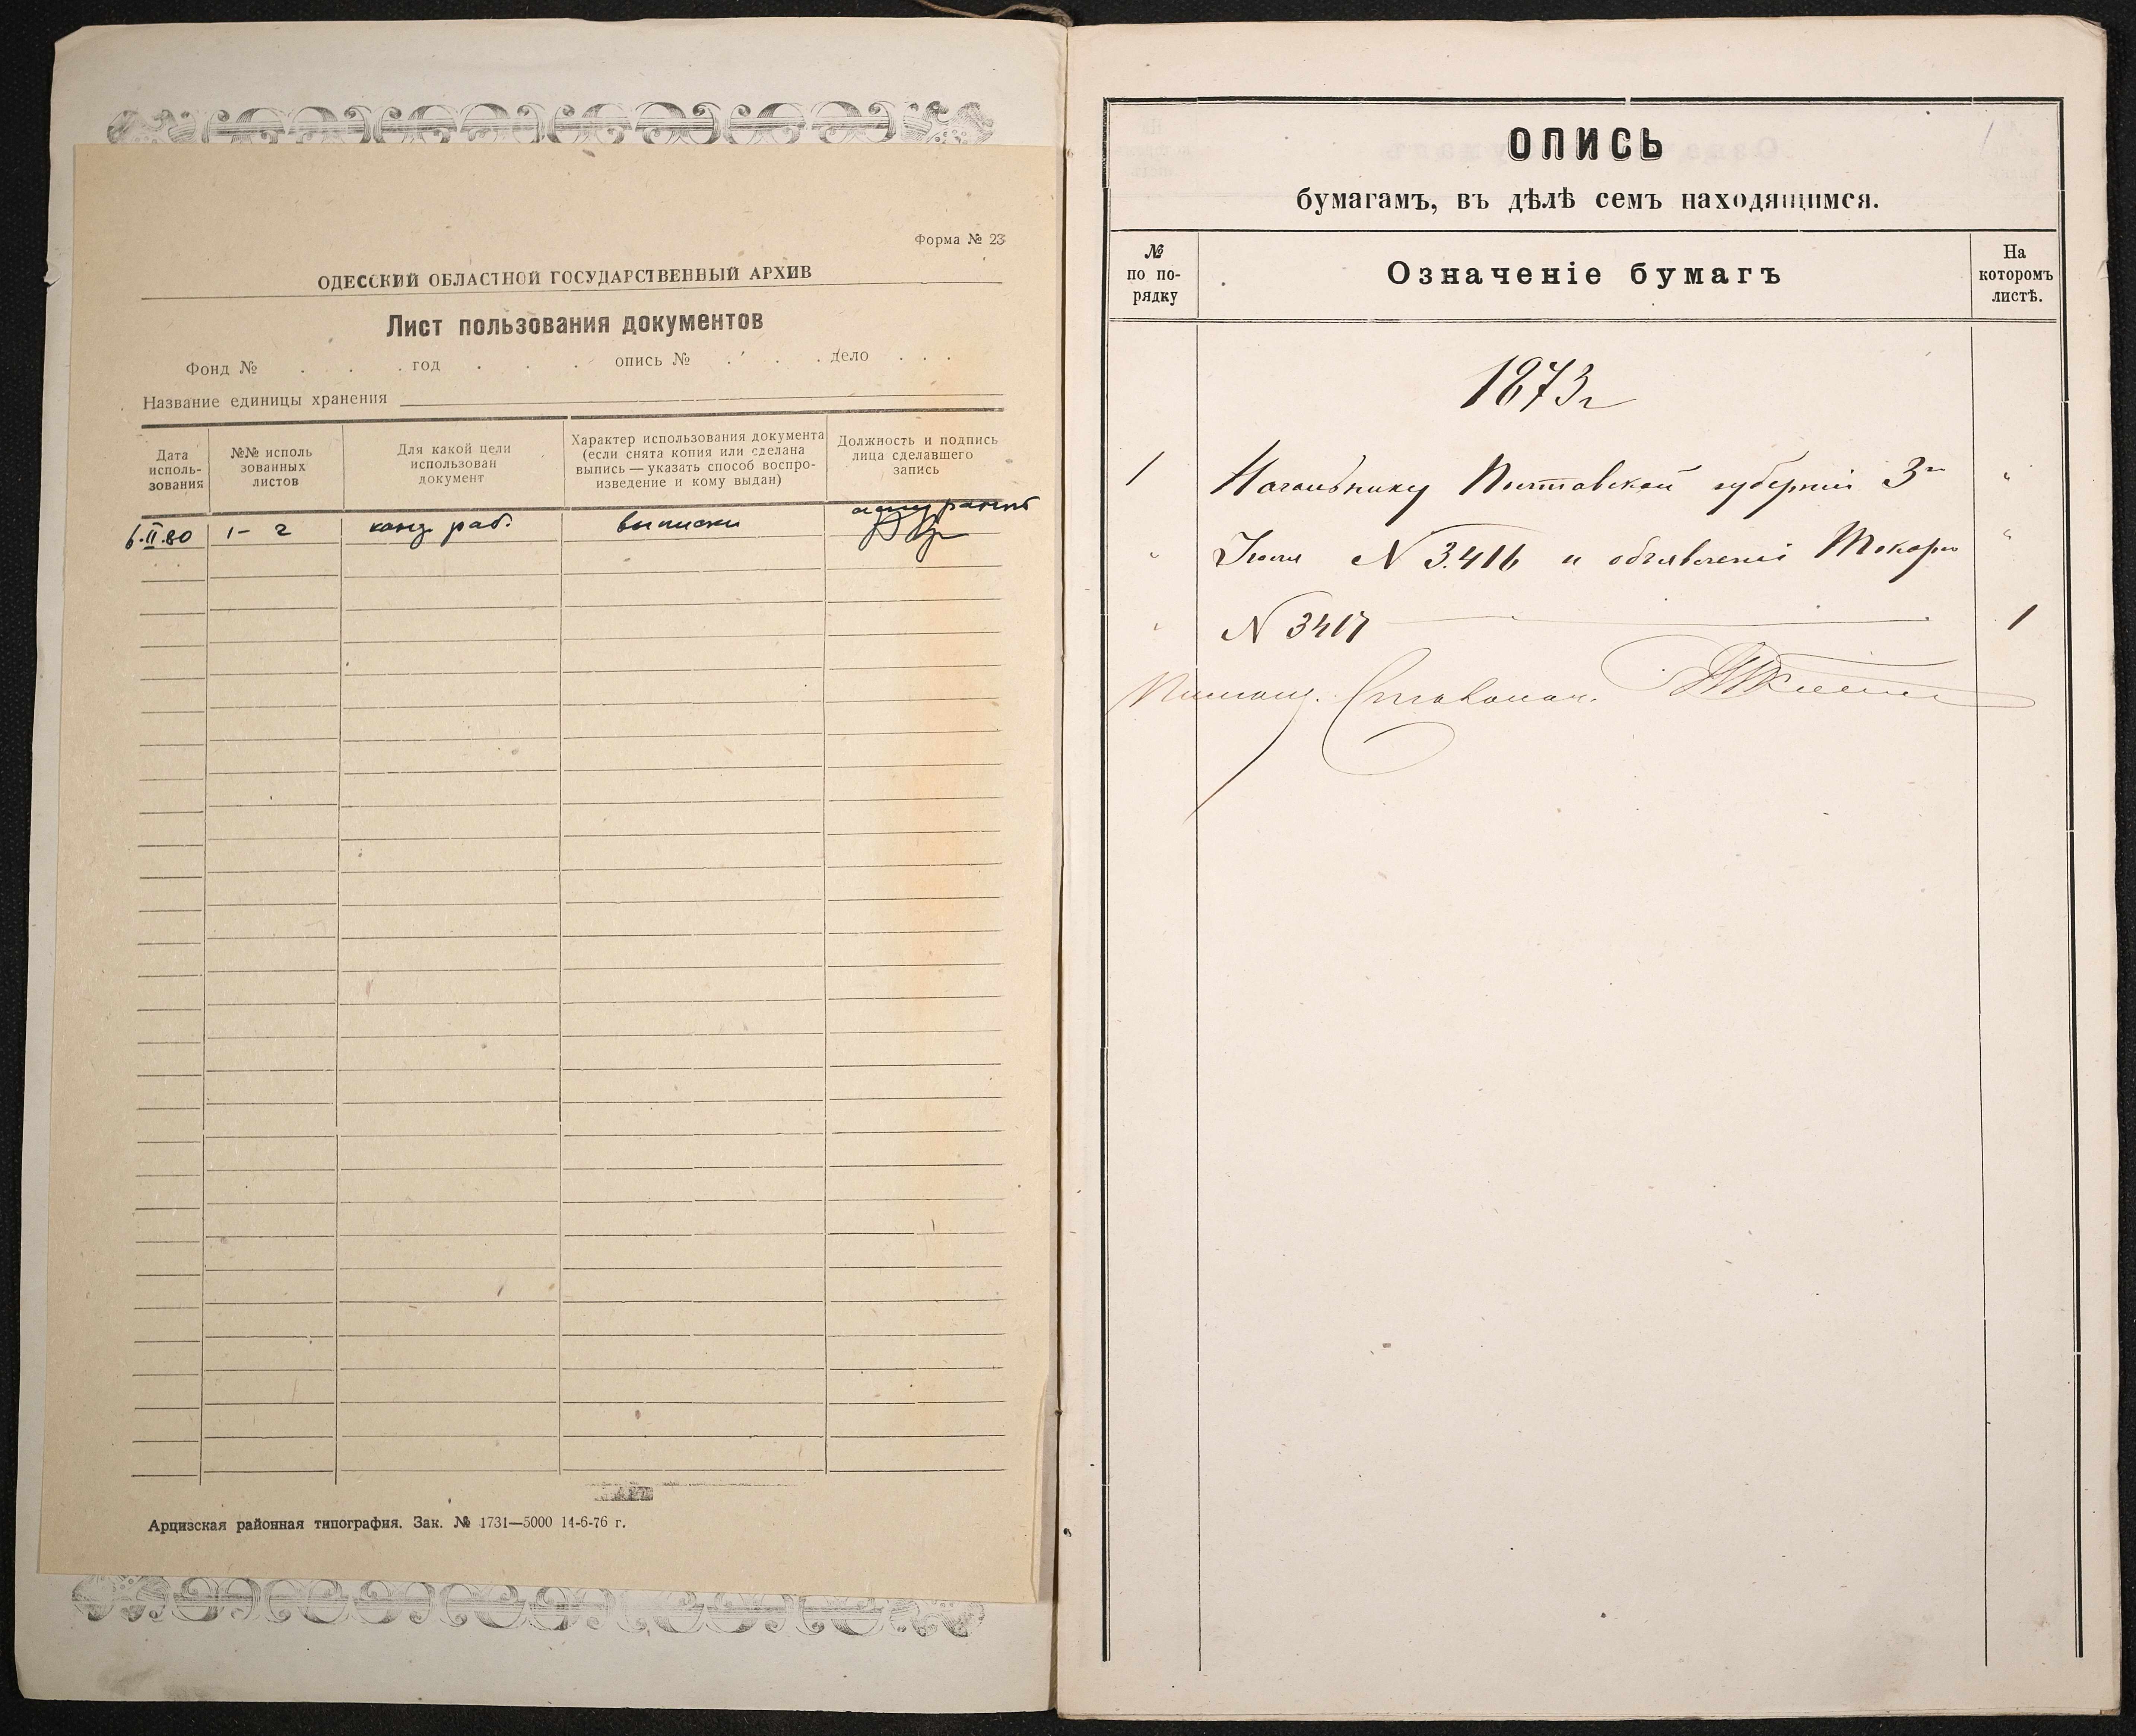 Форма № 23
ОДЕССКИЙ ОБЛАСТНОЙ ГОСУДАРСТВЕННЫЙ АРХИВ
Лист пользования документов
Фонд № . . . год . . . опись № . . . дело . . .
Название единицы хранения
Дата исполь-зования
№№ исполь зованных листов
Для какой цели использован документ
Характер использования документа (если снята копия или сделана выпись — указать способ воспро-изведение и кому выдан)
Должность и подпись лица сделавшего запись
6.II.80 1- 2 канд. раб. выписки
Арцизская районная типография. Зак. № 1731—5000 14-6-76 г.
ОПИСЬ
бумагамъ, въ дѣлѣ семъ находящимся.
№ по по-рядку
Означеніе бумагъ
На которомъ листѣ.
1873 г
1 Начальнику Полтавской губерніи 3го "
" Іюля N 3.416 и объявленіе Токарю "
" N 3417 1